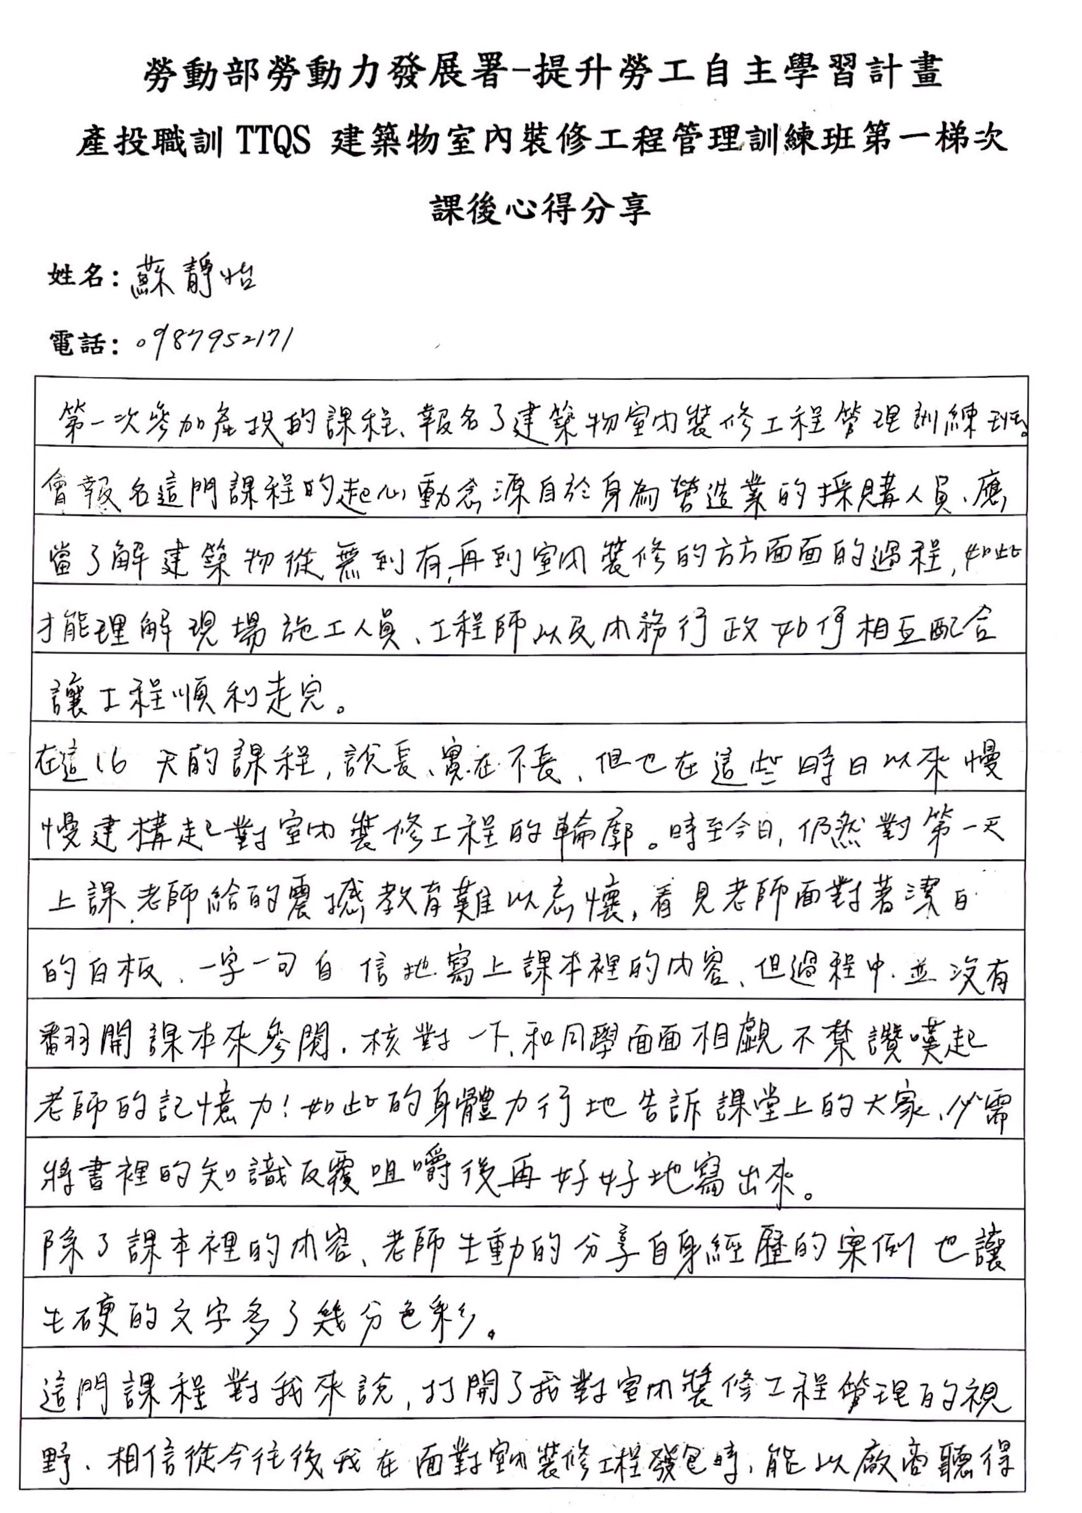 勞動部勞動力發展署-提升勞工自主學習計畫
產投職訓 TTQS 建築物室內裝修工程管理訓練班第一梯次
課後心得分享
姓名：蘇靜怡
電話：0987952171
第一次參加產投的課程、報名了建築物室內裝修工程管理訓練班。
會報名這門課程的起心動念源自於身為營造業的採購人員、應
當了解建築物從無到有,再到室內裝修的方方面面的過程,如此
才能理解現場施工人員、工程師以及內務行政如何相互配合
讓工程順利走完。
在這16天的課程,說長、實在不長、但也在這些時日以來慢
慢建構起對室內裝修工程的輪廓。時至今日,仍然對第一天
上課,老師給的震撼教育難以忘懷,看見老師面對著潔白
的白板、一字一句自信地寫上課本裡的內容、但過程中、並沒有
翻開課本來參閱、核對一下、和同學面面相覷不禁讚嘆起
老師的記憶力!如此的身體力行地告訴課堂上的大家、必需
將書裡的知識反覆咀嚼後再好好地寫出來。
除了課本裡的內容、老師生動的分享自身經歷的案例也讓
生硬的文字多了幾分色彩。
這門課程對我來說,打開了我對室內裝修工程管理的視
野、相信從今往後我在面對室內裝修工程發包時、能以廠商聽得